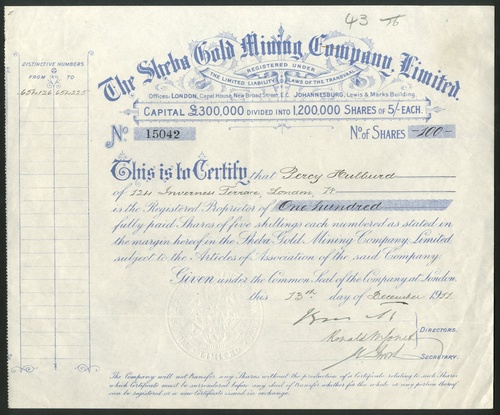 43
The Sheba Gold Mining Company, Limited.
REGISTERED UNDER
THE LIMITED LIABILITY LAWS OF THE TRANSVAAL
Offices: LONDON, Capel House, New Broad Street, E.C. JOHANNESBURG, Lewis & Marks Building.
CAPITAL £300,000 DIVIDED INTO 1,200,000 SHARES OF 5/- EACH.
DISTINCTIVE NUMBERS
FROM TO
654126 654225
No. 15042 No. of SHARES -100-
This is to Certify that Percy Hulburd
of 124 Inverness Terrace, London W
is the Registered Proprietor of One hundred
fully paid Shares of five shillings each numbered as stated in
the margin hereof in the Sheba Gold Mining Company, Limited,
subject to the Articles of Association of the said Company.
Given under the Common Seal of the Company at London,
this 13th day of December 1911.
DIRECTORS.
Ronald W. Jones
SECRETARY.
The Company will not transfer any Shares without the production of a Certificate relating to such Shares
which Certificate must be surrendered before any deed of transfer whether for the whole or any portion thereof
can be registered or a new Certificate issued in exchange.